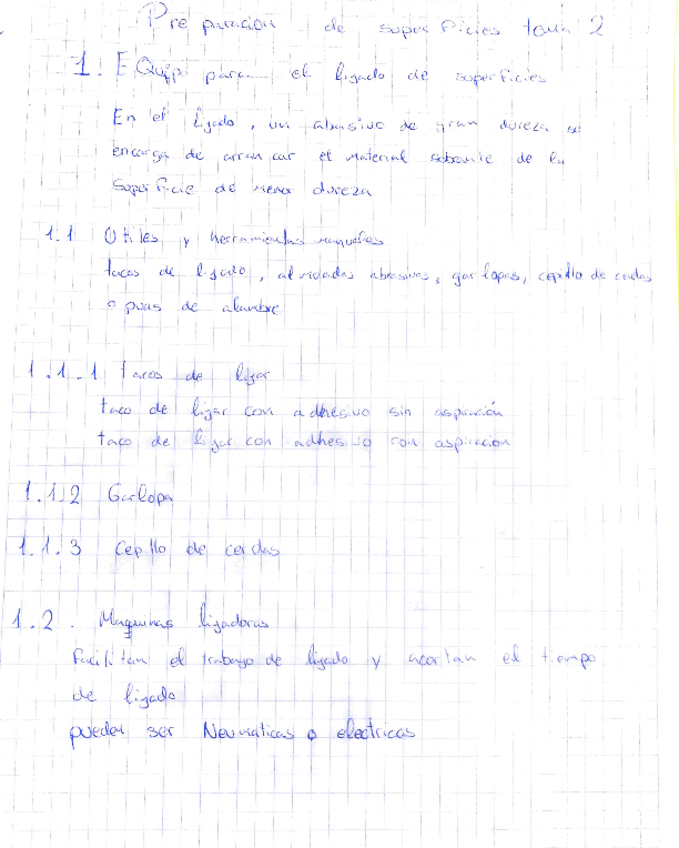 Preparación de superficies tema 2
1. Equipo para el ligado de superficies
En el ligado, un abrasivo de gran dureza se
encarga de arrancar et material sobrante de la
superficie de menor dureza
1.1 Utiles y herramientas manuales
tacos de ligado, almohadas abrasivas, garlopas, cepillo de cerdas
o puas de alambre
1.1.1 tacos de ligar
taco de ligar con adhesivo sin aspiración
taco de ligar con adhesivo con aspiracion
1.1.2 Garlopa
1.1.3 Cepillo de cerdas
1.2. Maquinas ligadoras
Facilitan el trabajo de ligado y acortan el tiempo
de ligado
pueden ser Neumaticas o electricas